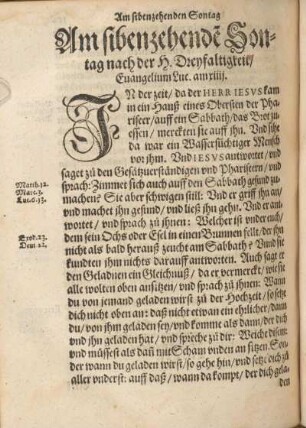 Am sibenzehenden Sontag
Am sibenzehendē Son-
tag nach der H. Dreyfaltigkeit/
Euangelium Luc. am xiiij.
IN der zeit/ da der HERR IESVS kam
in ein Hauß eines Obersten der Pha
riseer/ auff ein Sabbath/ das Brot zu
essen/ merckten sie auff ihn. Vnd sihe
da war ein Wassersüchtiger Mensch
vor ihm. Vnd IESVS antwortet/ vnd
saget zů den Gesätzuerständigen vnd Phariseern/ vnd
sprach: Zimmet sich auch auff den Sabbath gesund zu-
machen? Sie aber schwigen still: Vnd er griff ihn an/
vnd machet ihn gesund/ vnd ließ ihn gehn. Vnd er ant-
wortet/ vnd sprach zů ihnen: Welcher ist vnder euch/
dem sein Ochs oder Esel in einen Brunnen felle/ der ihn
nicht als bald herauß zeucht am Sabbath? Vnd sie
kundten ihm nichts darauff antworten. Auch sagt er
den Geladnen ein Gleichnuß/ da er vermerckt/ wie sie
alle wolten oben ansitzen/ vnd sprach zů ihnen: Wann
du von jemand geladen wirst zů der Hochzeit/ so setze
dich nicht oben an: daß nicht etwan ein ehrlicher/ dann
du/ von ihm geladen sey/ vnd komme als dann/ der dich
vnd ihn geladen hat/ vnd spreche zů dir: Weiche disem:
vnd müssest als dañ mit Scham vnden an sitzen. Son-
der wann du geladen wirst/ so gehe hin/ vnd setze dich zů
aller vnderst: auff daß/ wann da kompt/ der dich gela
den
Matth.12.
Marc.3.
Luc.6.13.
Exod.23.
Deut.22.